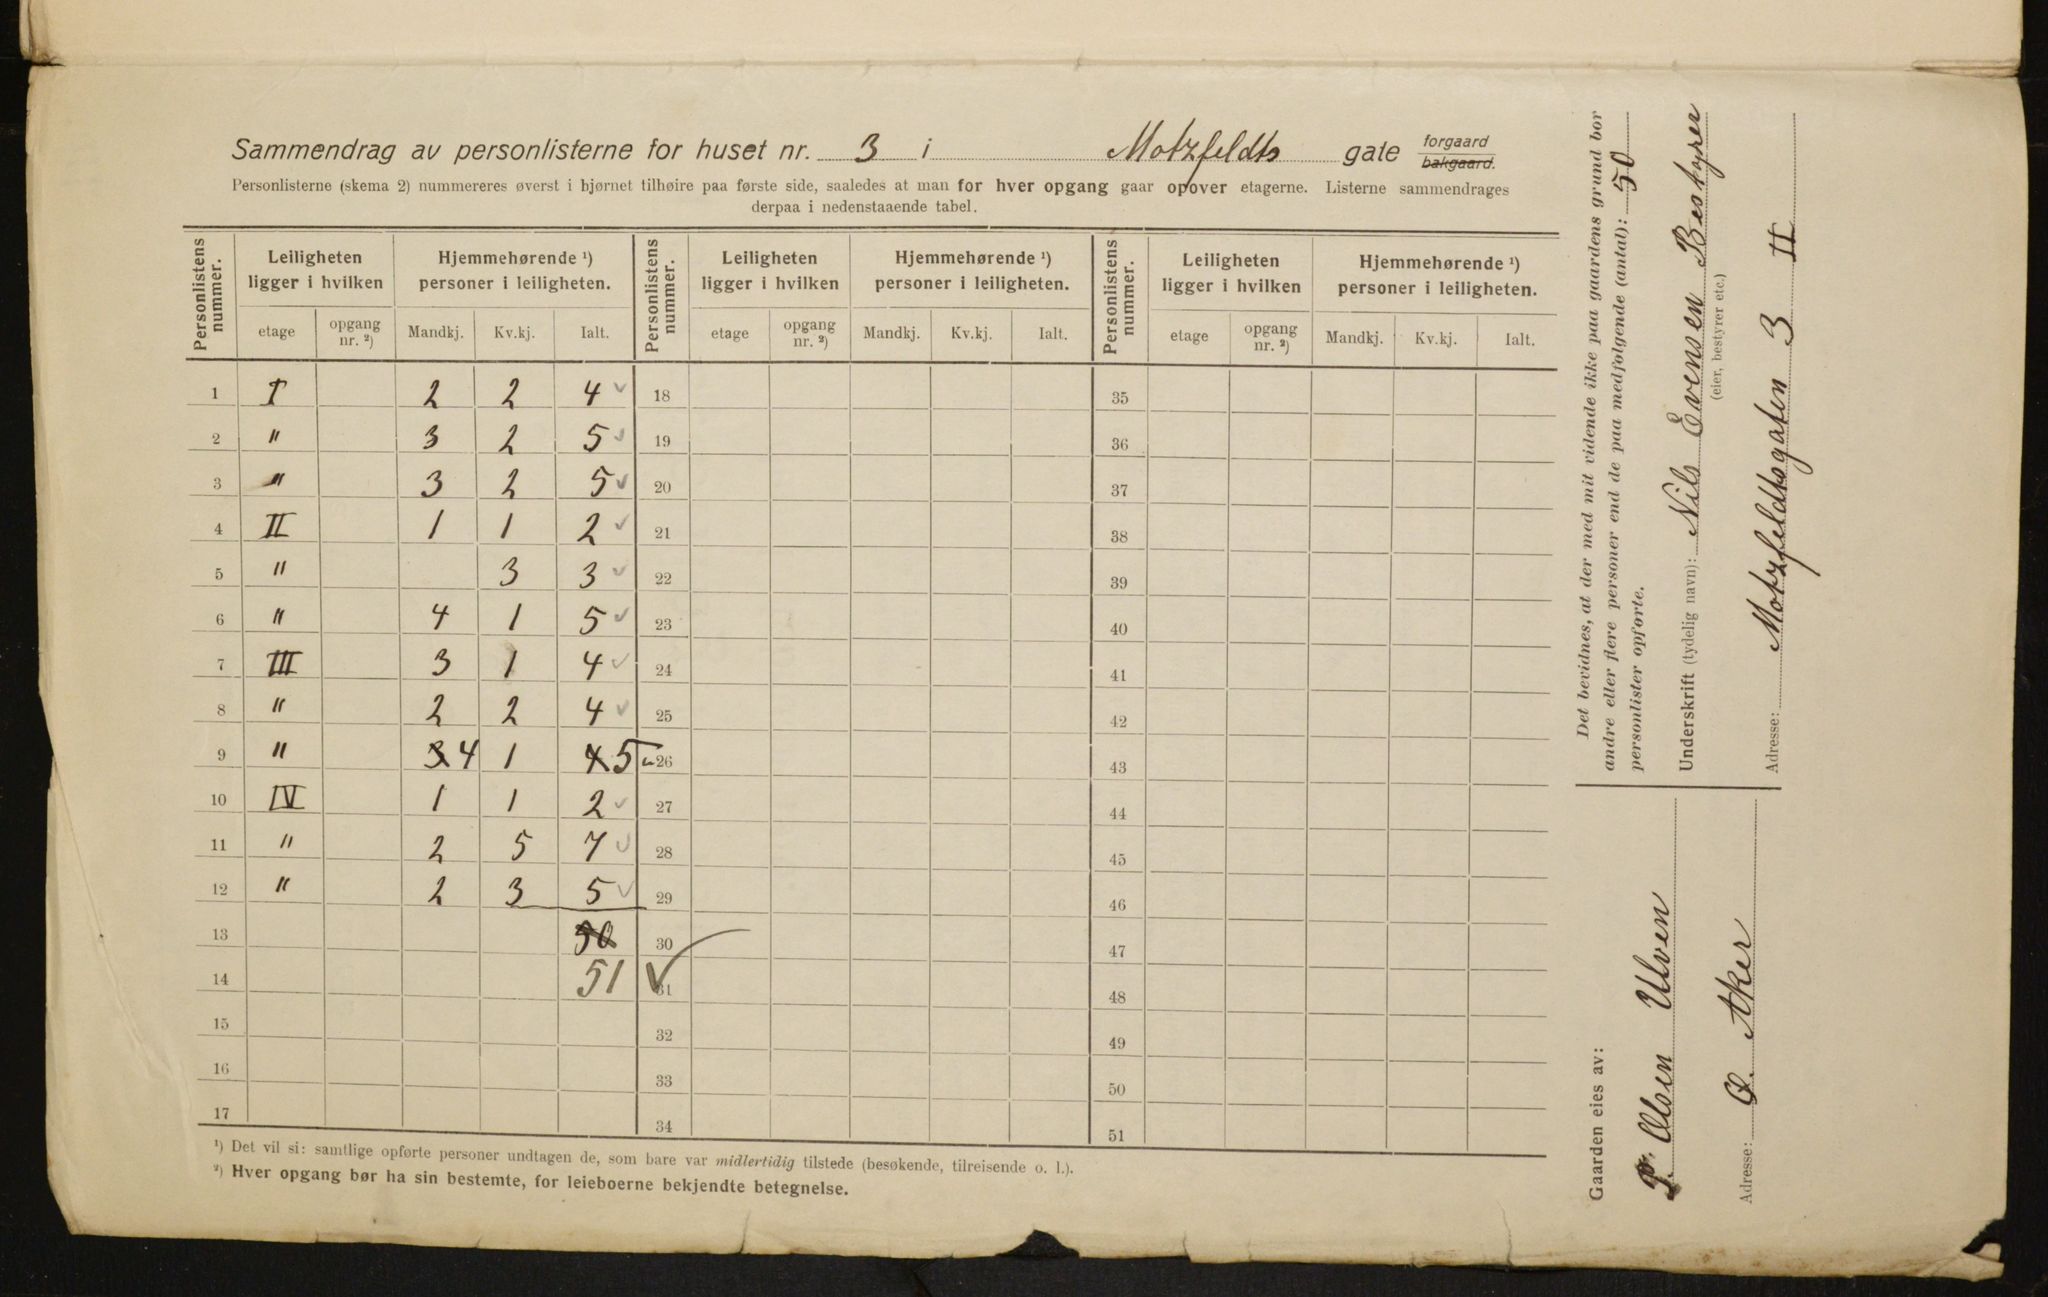 Sammendrag av personlisterne for huset nr. 3 i Motzfeldts gate forgaard bakgaard.
Personlisterne (skema 2) nummereres øverst i hjørnet tilhøire paa første side, saaledes at man for hver opgang gaar opover etagerne. Listerne sammendrages
derpaa i nedenstaaende tabel.
Personlistens nummer. Leiligheten ligger i hvilken Hjemmehørende ¹) personer i leiligheten. Personlistens nummer. Leiligheten ligger i hvilken Hjemmehørende ¹) personer i leiligheten. Personlistens nummer. Leiligheten ligger i hvilken Hjemmehørende ¹) personer i leiligheten.
etage opgang nr. ²) Mandkj. Kv.kj. Ialt. etage opgang nr. ²) Mandkj. Kv.kj. Ialt. etage opgang nr. ²) Mandkj. Kv.kj. Ialt.
1 I 2 2 4 18 35
2 " 3 2 5 19 36
3 " 3 2 5 20 37
4 II 1 1 2 21 38
5 " 3 3 22 39
6 " 4 1 5 23 40
7 III 3 1 4 24 41
8 " 2 2 4 25 42
9 " 3 4 1 4 5 26 43
10 IV 1 1 2 27 44
11 " 2 5 7 28 45
12 " 2 3 5 29 46
13 50 30 47
14 51 31 48
15 32 49
16 33 50
17 34 51
¹) Det vil si: samtlige opførte personer undtagen de, som bare var midlertidig tilstede (besøkende, tilreisende o. l.).
²) Hver opgang bør ha sin bestemte, for leieboerne bekjendte betegnelse.
Det bevidnes, at der med mit vidende ikke paa gaardens grund bor
andre eller flere personer end de paa medfølgende (antal): 50
personlister opførte.
Underskrift (tydelig navn): Nils Evensen Bestyrer
(eier, bestyrer etc.)
Adresse: Motzfeldtsgaten 3 II
Gaarden eies av:
P. Olsen Ulven
Adresse: Ø. Aker